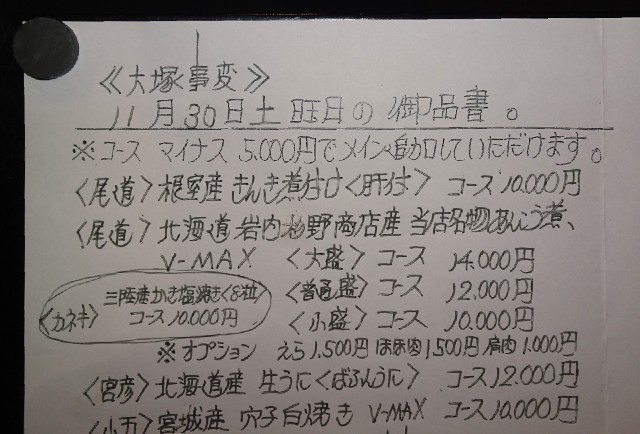 ≪大塚事変≫
11月30日土曜日の御品書。
※コース マイナス 5.000円でメイン追加していただけます。
〈尾道〉根室産 きんき煮付け〈肝付〉 コース 10.000円
〈尾道〉北海道 岩内 野商店産 当店名物あんこう煮、
V-MAX 〈大盛〉 コース 14.000円
〈普通盛〉 コース 12.000円
〈カネキ〉 三陸産かき塩焼き〈8粒〉 コース 10.000円
〈小盛〉 コース 10.000円
※オプション えら 1.500円 ほほ肉 1.500円 肩肉 1.000円
〈宮彦〉北海道産 生うに〈ばふんうに〉 コース 12.000円
〈小五〉宮城産 穴子白焼き V-MAX コース 10.000円